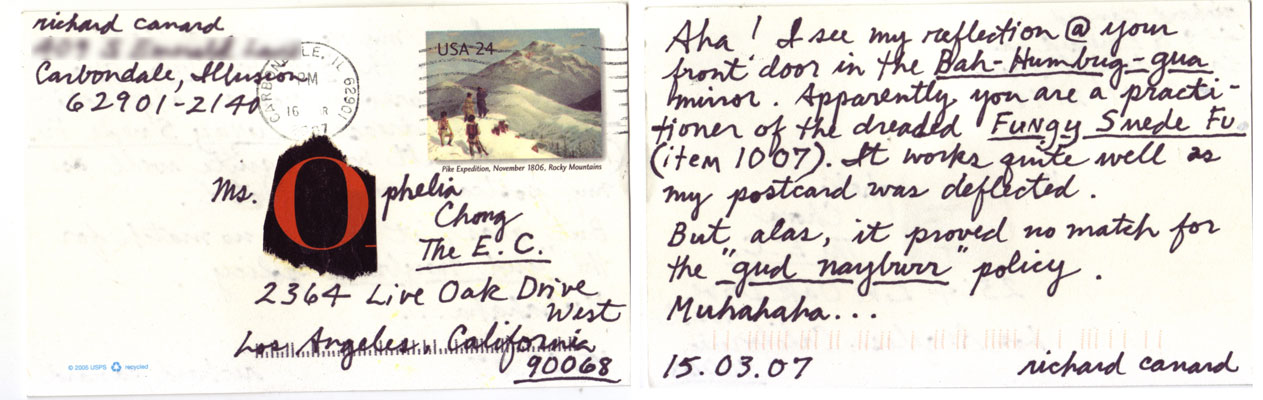 richard canard
Carbondale, Illusion
62901-2140
LE, IL 62901
PM
16
USA 24
Pike Expedition, November 1806, Rocky Mountains
Ms. Ophelia
Chong
The E.C.
2364 Live Oak Drive
West
Los Angeles, California
90068
© 2005 USPS recycled
Aha! I see my reflection @ your
front door in the Bah-Humbug-gua
mirror. Apparently you are a practi-
tioner of the dreaded Fungy Suede Fu
(item 1007). It works quite well as
my postcard was deflected.
But, alas, it proved no match for
the "gud nayburr" policy.
Muhahaha...
15.03.07 richard canard